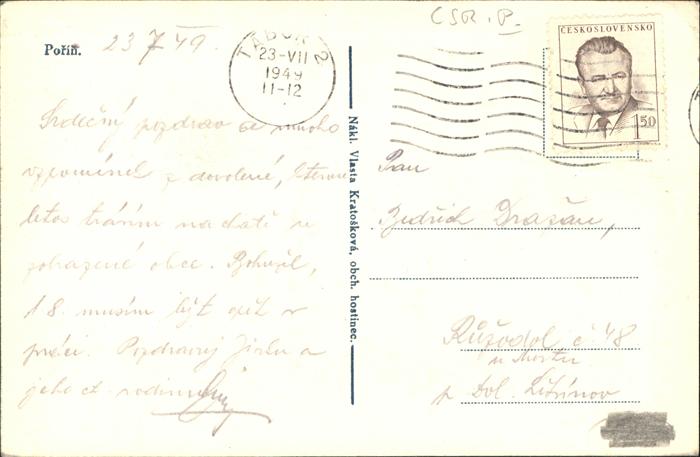 ČSR. P.
Pořín. 23 7 49.
TÁBOR 2
23-VII
1949
11-12
ČESKOSLOVENSKO
1.50
Srdečný pozdrav se mnoho
vzpomínek z dovolené, kterou
letos trávím na chatě v
zobrazené obci. Bohužel,
1 8. musím být opět v
práci. Pozdravuj Jirku a
jeho ct. rodinu
Nákl. Vlasta Kratošková, obch. hostinec.
Pan
Jindřich
Růžodol č 48
u Mostu
p. Dol. Litvínov